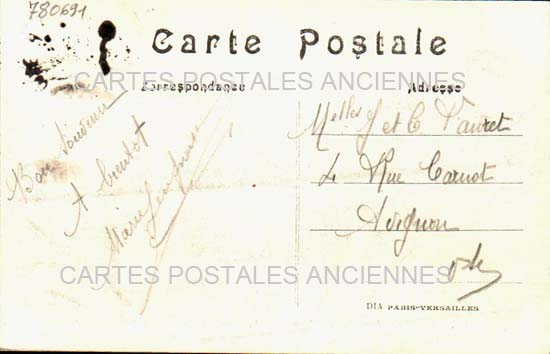 780691
Carte Postale
CARTES POSTALES ANCIENNES
Correspondance
Adresse
Bon Souvenir
A bientot
Marie
Melles J et C Vauret
4 Rue Carnot
Avignon
CARTES POSTALES ANCIENNES
DIA PARIS-VERSAILLES